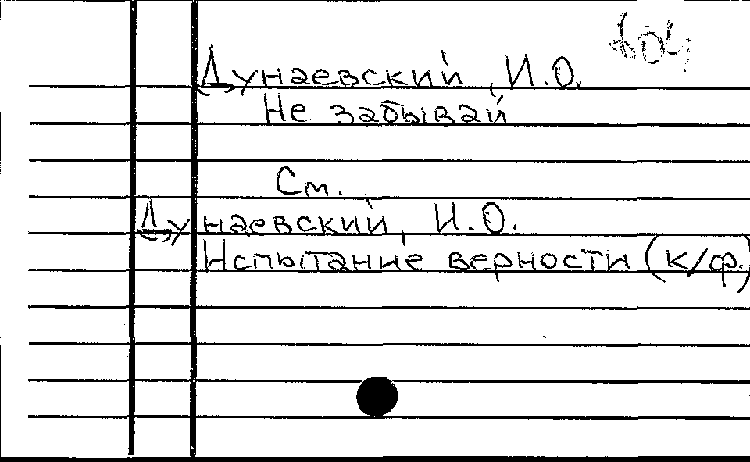 Дунаевский, И.О.
Не забывай
См.
Дунаевский, И.О.
Испытание верности (к/ф.)